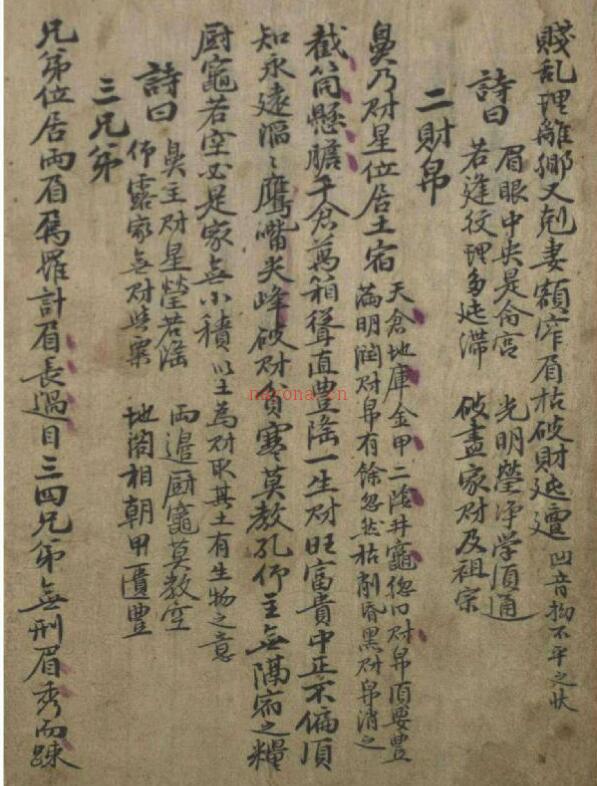 賤乱理離鄉又剋妻額窄眉枯破財迍邅 凹音拗不平之狀
詩曰
眉眼中央是命宮 光明瑩淨学須通
若逢紋理多迍滯 破盡家财及祖宗
二財帛
鼻乃财星位居土宿
天倉地庫金甲二陰井竈總曰财帛須要豊
滿明潤财帛有餘忽然枯削昏黑财帛消乏
截筒懸膽千倉萬箱聳直豊隆一生财旺富貴中正不偏須
知永遠滔〻鷹嘴尖峰破财貧寒莫教孔仰主無隔宿之糧
厨竈若空必是家無小積 以土為财取其土有生物之意
詩曰
鼻主财星瑩若隆 兩邊厨竈莫教空
仰露家無财與粟 地閣相朝甲匱豊
三兄弟
兄弟位居兩眉為羅計眉長過目三四兄弟無刑眉秀而踈
nayona.cn